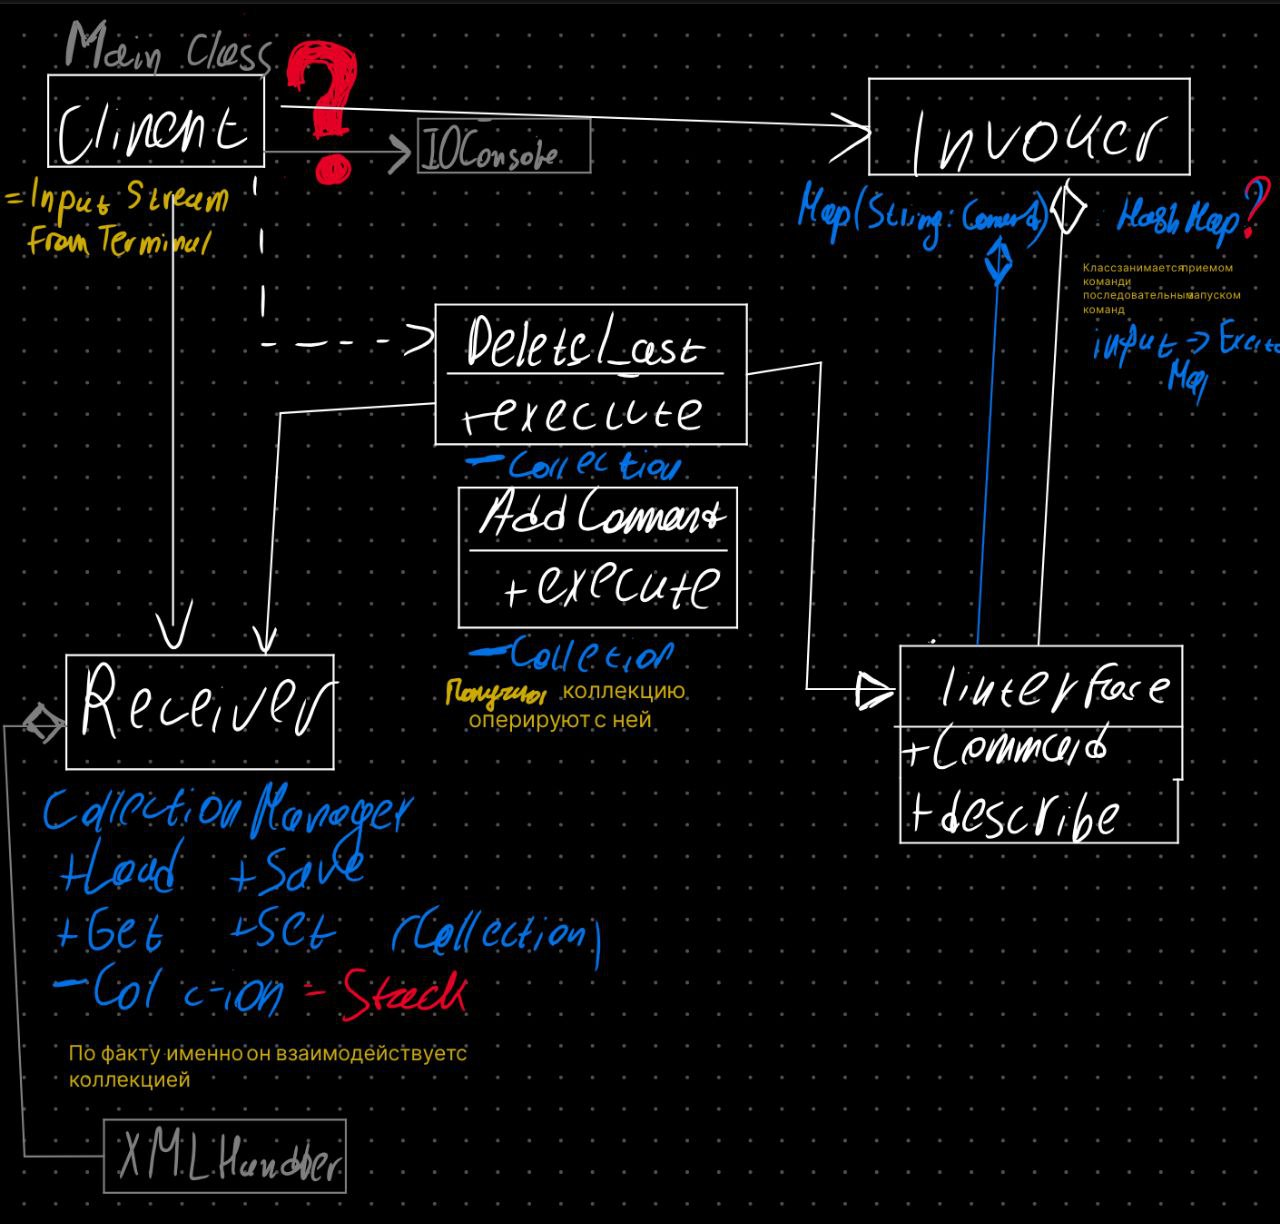 Main Class
Clinent
?
IOConsole
Invoker
= Input Stream
From Terminal
Map(String: Comand)
HashMap?
Классзанимаетсяприемом
команди
последовательнымзапуском
команд
input → Execute
Map
DeleteLast
+execute
- Collection
Add Command
+ execute
- Colletion
Получают коллекцию
оперируют с ней
Receiver
Iinterface
+Command
+describe
Collection Manager
+Load +Save
+Get +Set (Collection)
- Col c-ion - Stack
По факту именно он взаимодействуетс
коллекцией
XML Handler